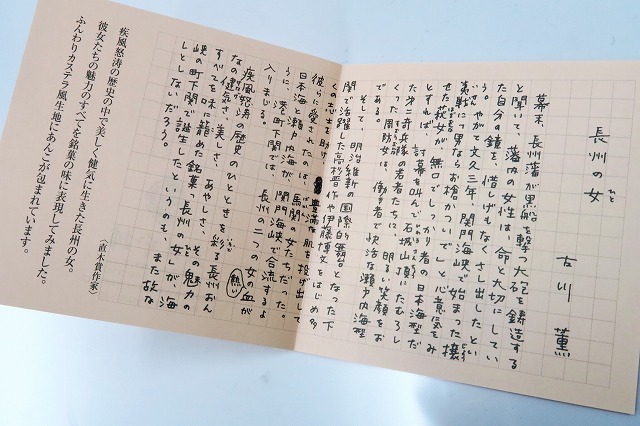 長州の女
ひと
古川 薫
幕末、長州藩が黒船を撃つ大砲を鋳造する
と聞いて、藩内の女性は、命と大切にしてい
た自分の鏡を、惜しげもなくさし出したとい
う。やがて文久三年、関門海峡で始まった攘
夷戦に「男ならお槍かついで」と心意気をみ
せた萩女が、無口でしっかり者の日本海型だ
とすれば、討幕を叫んで石城山頂にたむろし
た第二奇兵隊の若者たちに、明るい笑顔をお
くった周防女は、働き者で快活な瀬戸内海型
である。
そして、明治維新の国際的舞台となった下
関で活躍した高杉晋作や伊藤博文をはじめ多
くの志士を助け、豊満な肌を投げ出して
彼らに愛されたのは、馬関の女たちだった。
日本海と瀬戸内海が、関門海峡で合流するよ
うに、港町下関では、長州の二つの女の血が
入りまじる。
熱い
疾風怒涛の歴史のひとときを彩る長州おん
なの健気さ、美しさ、あやしさ、その魅力の
すべてを味に籠めた銘菓「長州の女」が、海
峡の町下関で誕生したというのも、また故な
しとしないだろう。
〈直木賞作家〉
疾風怒涛の歴史の中で美しく健気に生きた長州の女。
彼女たちの魅力のすべてを銘菓の味に表現してみました。
ふんわりカステラ風生地にあんこが包まれています。